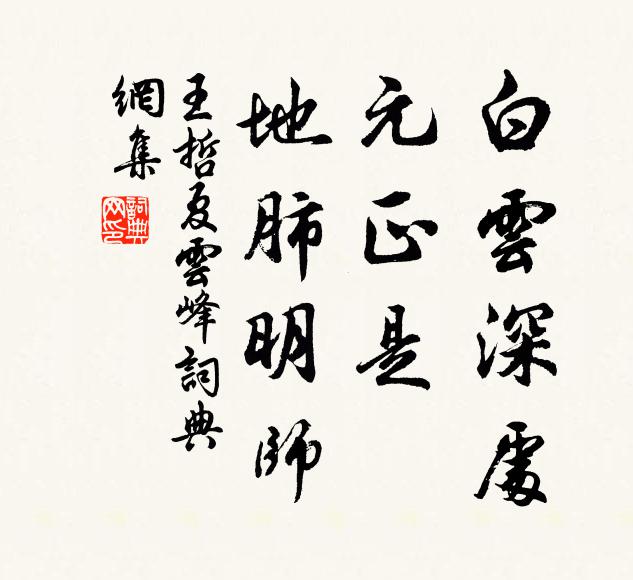 白雲深處
元正是
地肺明師
王哲夏雲峰詞典
網集
詞典網印